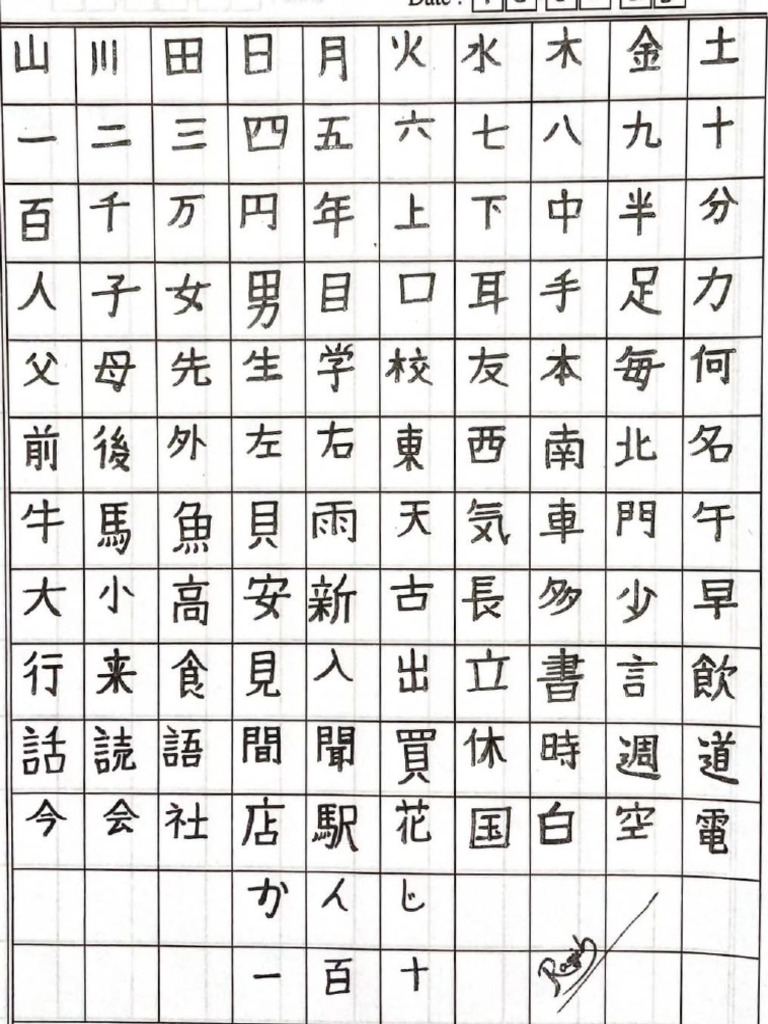 Date :
山 川 田 日 月 火 水 木 金 土
一 二 三 四 五 六 七 八 九 十
百 千 万 円 年 上 下 中 半 分
人 子 女 男 目 口 耳 手 足 力
父 母 先 生 学 校 友 本 毎 何
前 後 外 左 右 東 西 南 北 名
牛 馬 魚 貝 雨 天 気 車 門 午
大 小 高 安 新 古 長 多 少 早
行 来 食 見 入 出 立 書 言 飲
話 読 語 間 聞 買 休 時 週 道
今 会 社 店 駅 花 国 白 空 電
か ん じ
一 百 十